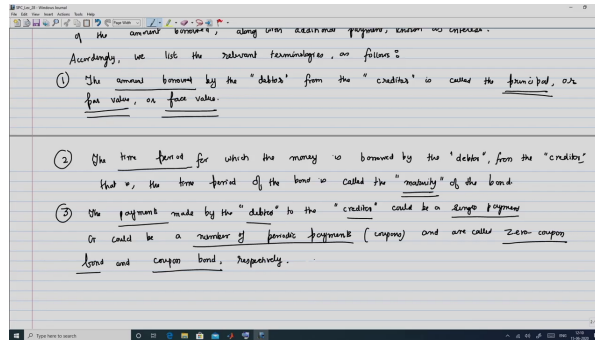 BPC_Lec_28 - Windows Journal
File Edit View Insert Actions Tools Help
Page Width
of the amount borrowed, along with additional payment, known as interest.
Accordingly, we list the relevant terminologies, as follows:
① The amount borrowed by the "debtor" from the "creditor" is called the principal, or
par value, or face value.
② The time period for which the money is borrowed by the "debtor", from the "creditor"
that is, the time period of the bond is called the "maturity" of the bond.
③ The payments made by the "debtor" to the "creditor" could be a single payment
Or could be a number of periodic payments (coupons) and are called zero coupon
bond and coupon bond, respectively.
Type here to search
ENG